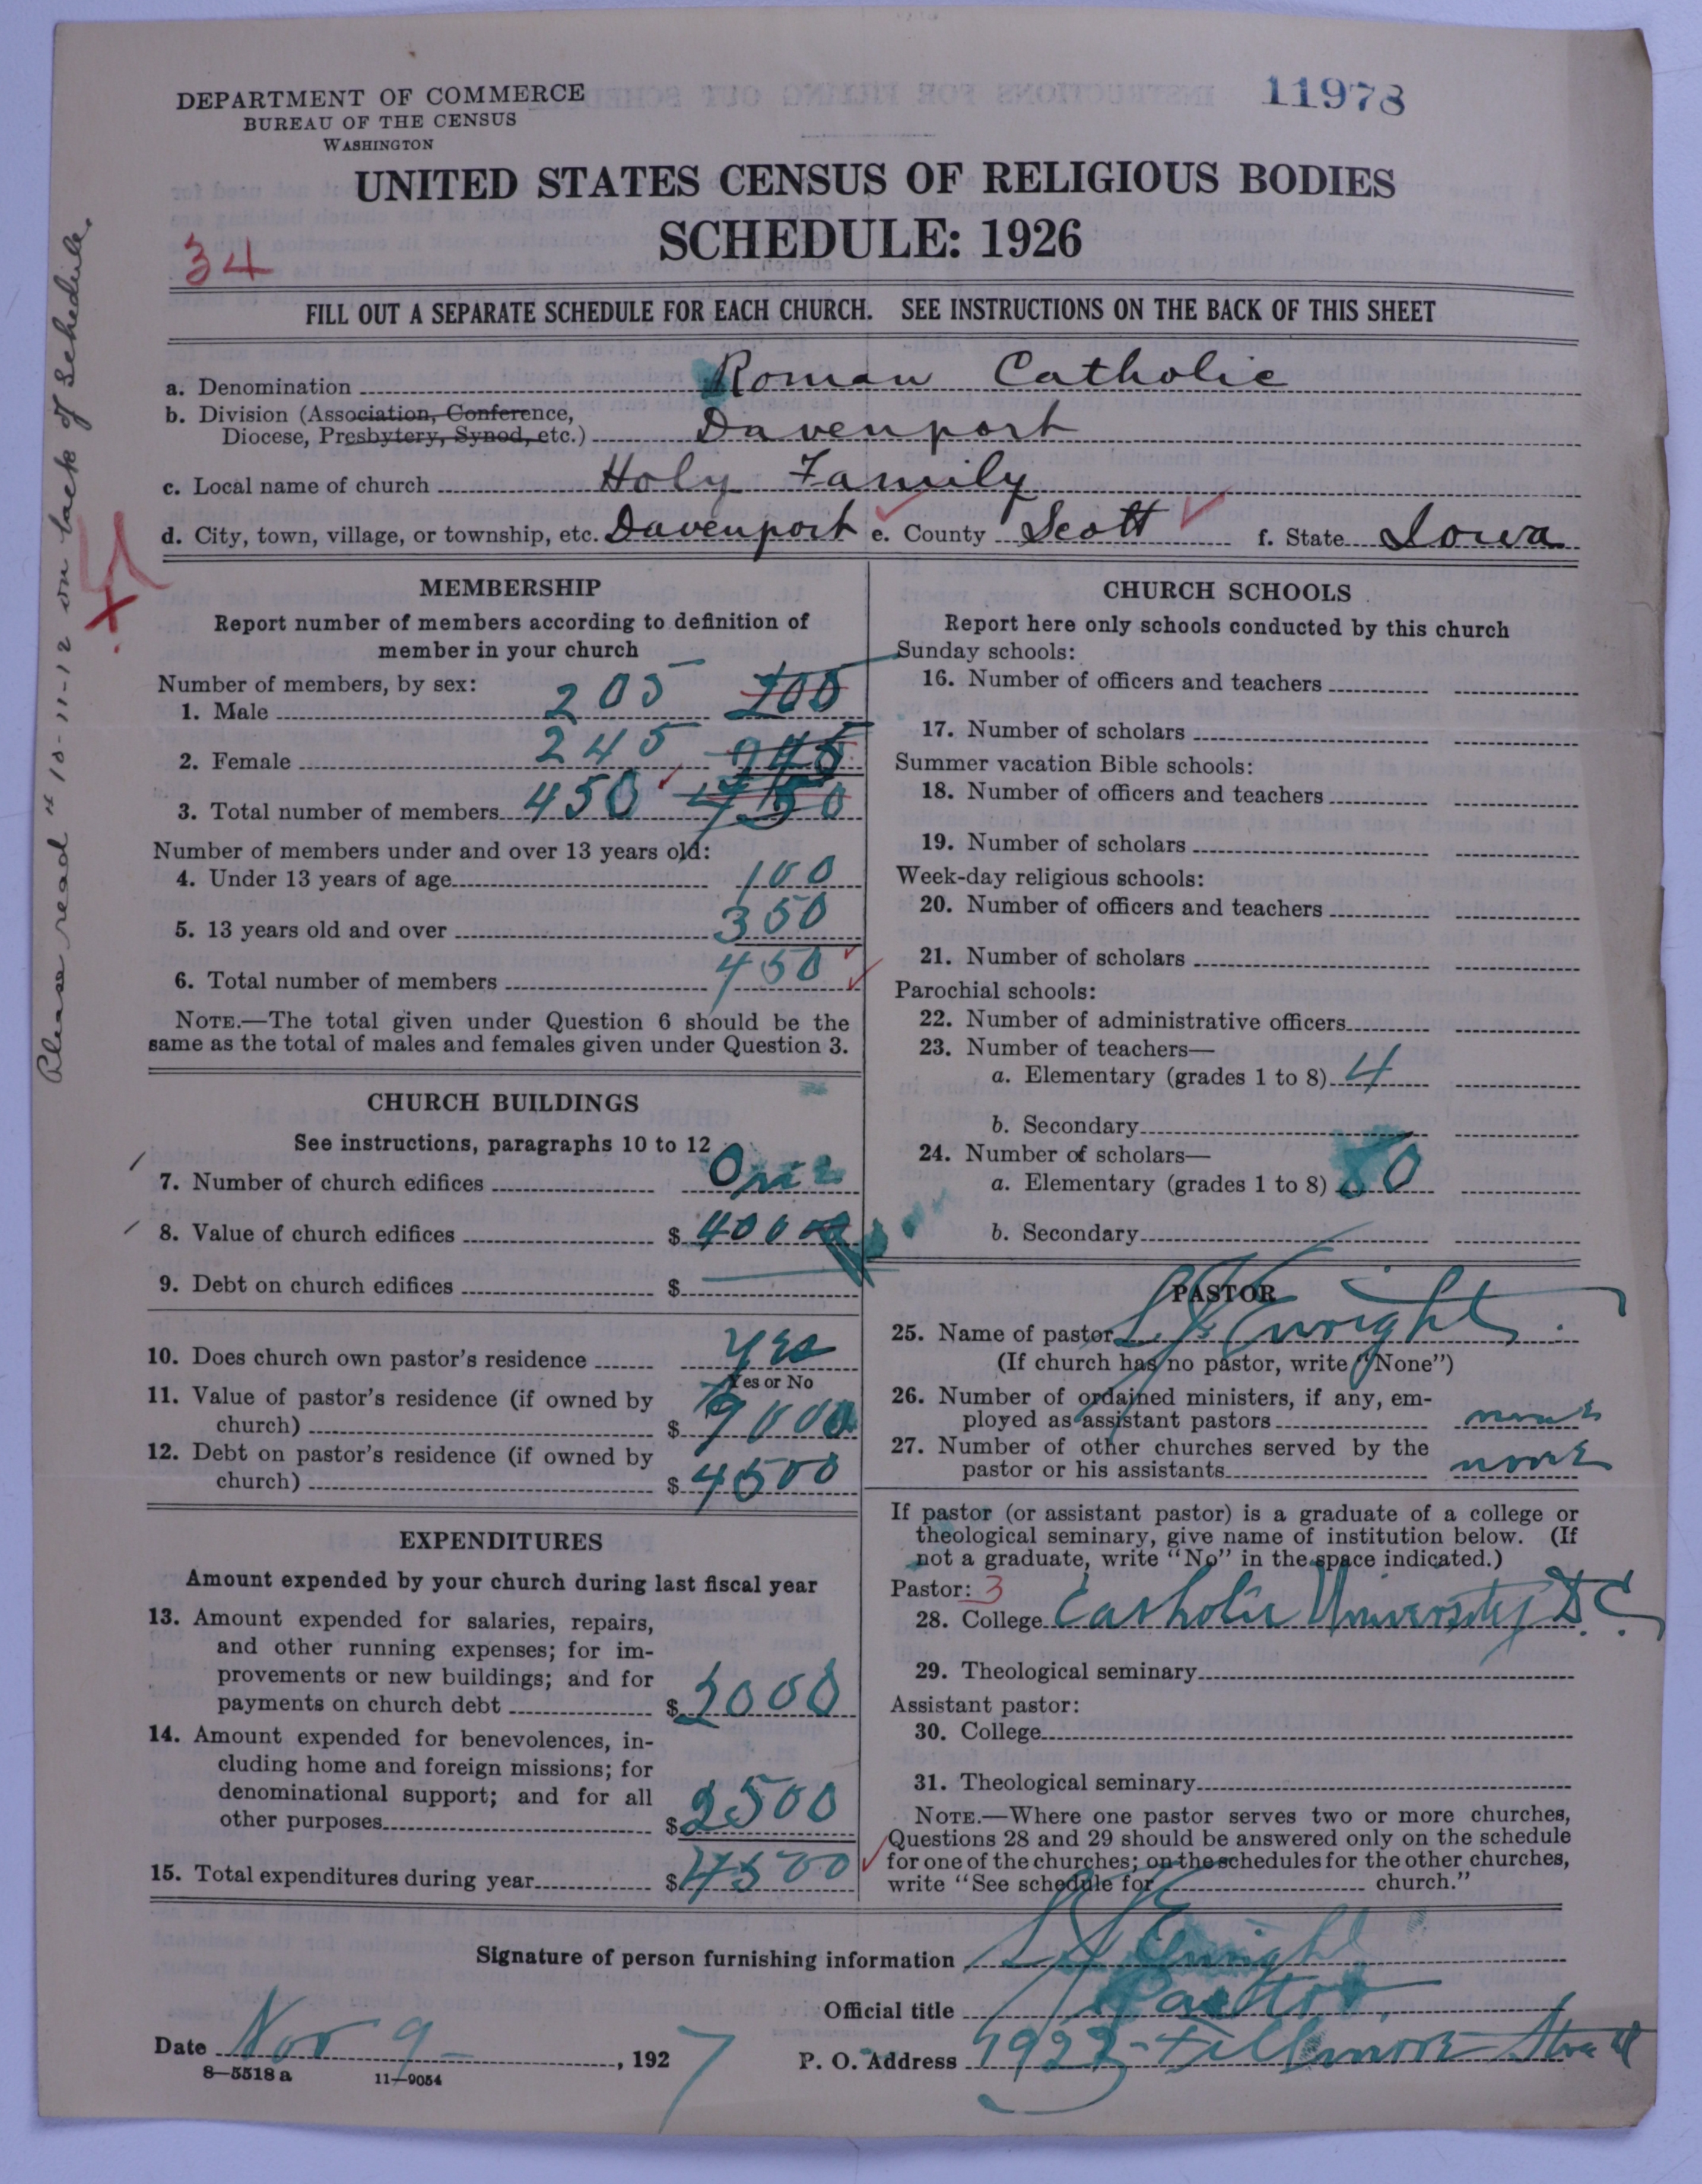 11978
DEPARTMENT OF COMMERCE
BUREAU OF THE CENSUS
WASHINGTON
UNITED STATES CENSUS OF RELIGIOUS BODIES
SCHEDULE: 1926
34
FILL OUT A SEPARATE SCHEDULE FOR EACH CHURCH. SEE INSTRUCTIONS ON THE BACK OF THIS SHEET
a. Denomination Roman Catholic
b. Division (Association, Conference,
Diocese, Presbytery, Synod, etc.) Davenport
c. Local name of church Holy Family
d. City, town, village, or township, etc. Davenport e. County Scott f. State Iowa
Please read " 10-11-12 on back of Schedule.
MEMBERSHIP
Report number of members according to definition of
member in your church
Number of members, by sex:
1. Male 205
2. Female 245
3. Total number of members 450
Number of members under and over 13 years old:
4. Under 13 years of age 100
5. 13 years old and over 350
6. Total number of members 450
NOTE.—The total given under Question 6 should be the
same as the total of males and females given under Question 3.
CHURCH BUILDINGS
See instructions, paragraphs 10 to 12
7. Number of church edifices One
8. Value of church edifices $
9. Debt on church edifices $
10. Does church own pastor's residence Yes
Yes or No
11. Value of pastor's residence (if owned by
church) $ 9000
12. Debt on pastor's residence (if owned by
church) $ 4500
EXPENDITURES
Amount expended by your church during last fiscal year
13. Amount expended for salaries, repairs,
and other running expenses; for im-
provements or new buildings; and for
payments on church debt $ 2000
14. Amount expended for benevolences, in-
cluding home and foreign missions; for
denominational support; and for all
other purposes $ 2500
15. Total expenditures during year $ 4500
CHURCH SCHOOLS
Report here only schools conducted by this church
Sunday schools:
16. Number of officers and teachers
17. Number of scholars
Summer vacation Bible schools:
18. Number of officers and teachers
19. Number of scholars
Week-day religious schools:
20. Number of officers and teachers
21. Number of scholars
Parochial schools:
22. Number of administrative officers
23. Number of teachers—
a. Elementary (grades 1 to 8) 4
b. Secondary
24. Number of scholars—
a. Elementary (grades 1 to 8) 80
b. Secondary
PASTOR
25. Name of pastor Enright
(If church has no pastor, write "None")
26. Number of ordained ministers, if any, em-
ployed as assistant pastors none
27. Number of other churches served by the
pastor or his assistants none
If pastor (or assistant pastor) is a graduate of a college or
theological seminary, give name of institution below. (If
not a graduate, write "No" in the space indicated.)
Pastor: 3
28. College Catholic University D.C.
29. Theological seminary
Assistant pastor:
30. College
31. Theological seminary
NOTE.—Where one pastor serves two or more churches,
Questions 28 and 29 should be answered only on the schedule
for one of the churches; on the schedules for the other churches,
write "See schedule for church."
Signature of person furnishing information Enright
Official title Pastor
Date Nov 9 , 1927 P. O. Address 1923 Fillmore Street
8—5518a 11—9054